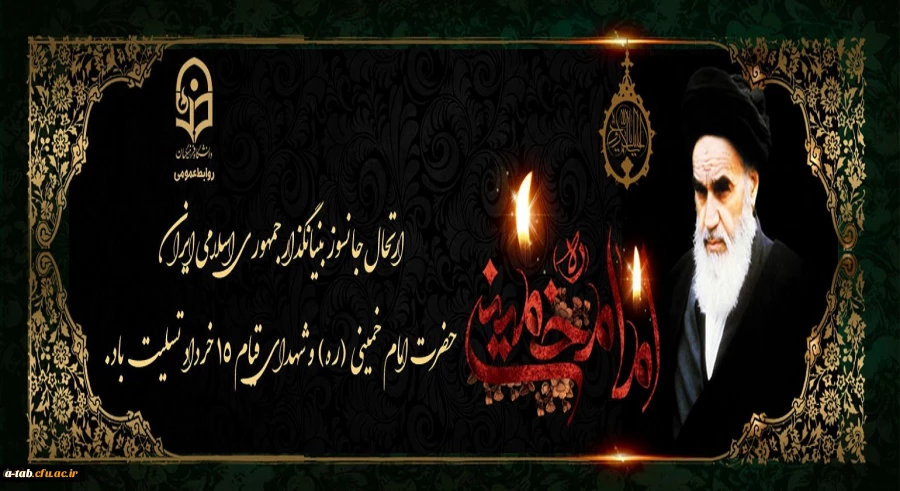 دانشگاه فرهنگیان
روابط عمومی
ارتحال جانسوز بنیانگذار جمهوری اسلامی ایران
حضرت امام خمینی (ره) و شهدای قیام ۱۵ خرداد تسلیت باد.
امام خمینی
ره
a-tab.cfu.ac.ir